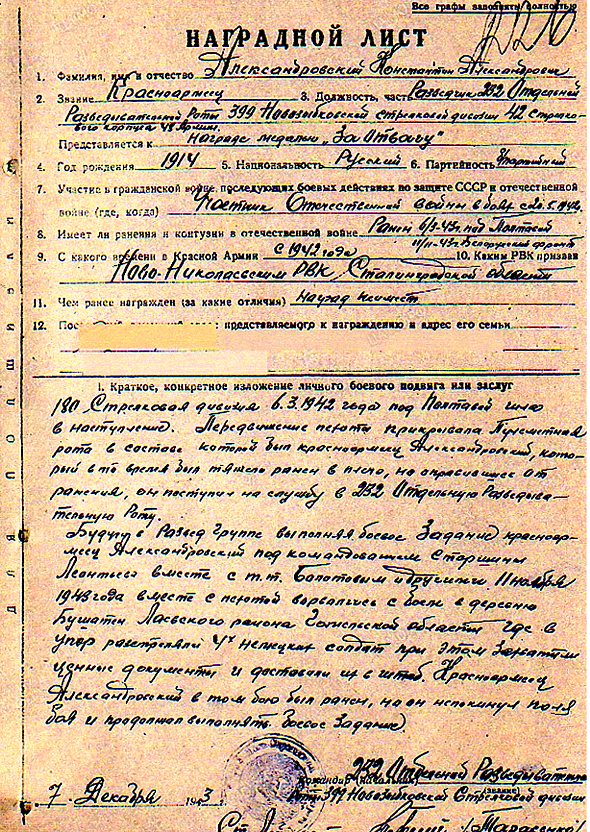 Все графы заполнять полностью
НАГРАДНОЙ ЛИСТ
1. Фамилия, имя и отчество Александровский Константин Александрович
2. Звание Красноармеец 3. Должность, часть Разведчик 232 Отдельной
Разведывательной Роты 399 Новозыбковской Стрелковой дивизии 42 Стрелко-
вого корпуса 48 Армии.
Представляется к Награде медалью "За Отвагу"
4. Год рождения 1914 5. Национальность Русский 6. Партийность б/партийный
7. Участие в гражданской войне, последующих боевых действиях по защите СССР и отечественной
войне (где, когда) Участник Отечественной войны в боях с
8. Имеет ли ранения и контузии в отечественной войне Ранен 6/3-43г. под Полтавой
11/11-43г. Белорусский фронт
9. С какого времени в Красной Армии с 1942 года 10. Каким РВК призван
Ново-Николаевским РВК, Сталинградской области
11. Чем ранее награжден (за какие отличия) Наград не имеет
12. представляемого к награждению и адрес его семьи
I. Краткое, конкретное изложение личного боевого подвига или заслуг
180 Стрелковая дивизия 6.3.1942 года под Полтавой шло
в наступление. Передвижение пехоты прикрывала Пулеметная
рота в составе которой был красноармеец Александровский, кото-
рый в то время был тяжело ранен в плечо, но оправившись от
ранения, он поступил на службу в 232 Отдельную Разведыва-
тельную Роту.
Будучи в Развед Группе выполняя боевое Задание красноар-
меец Александровский под командованием Старшины
Леонтьева вместе с т.т. Болотовим и другими 11 ноября
1943 года вместе с пехотой ворвались с боем в деревню
Бушатин Лоевского района Гомельской области где в
упор расстреляли 4х немецких солдат при этом Захватили
ценные документы и доставили их в штаб. Красноармеец
Александровский в том бою был ранен, но он непокинул поля
боя и продолжал выполнять боевое Задание.
232 Отдельной Разведыватель
командир (начальник) (звание)
Роты 399 Новозыбковской Стрелковой дивизии
7 Декабря 1943 г.
ДЛЯ ПОДШИВКИ